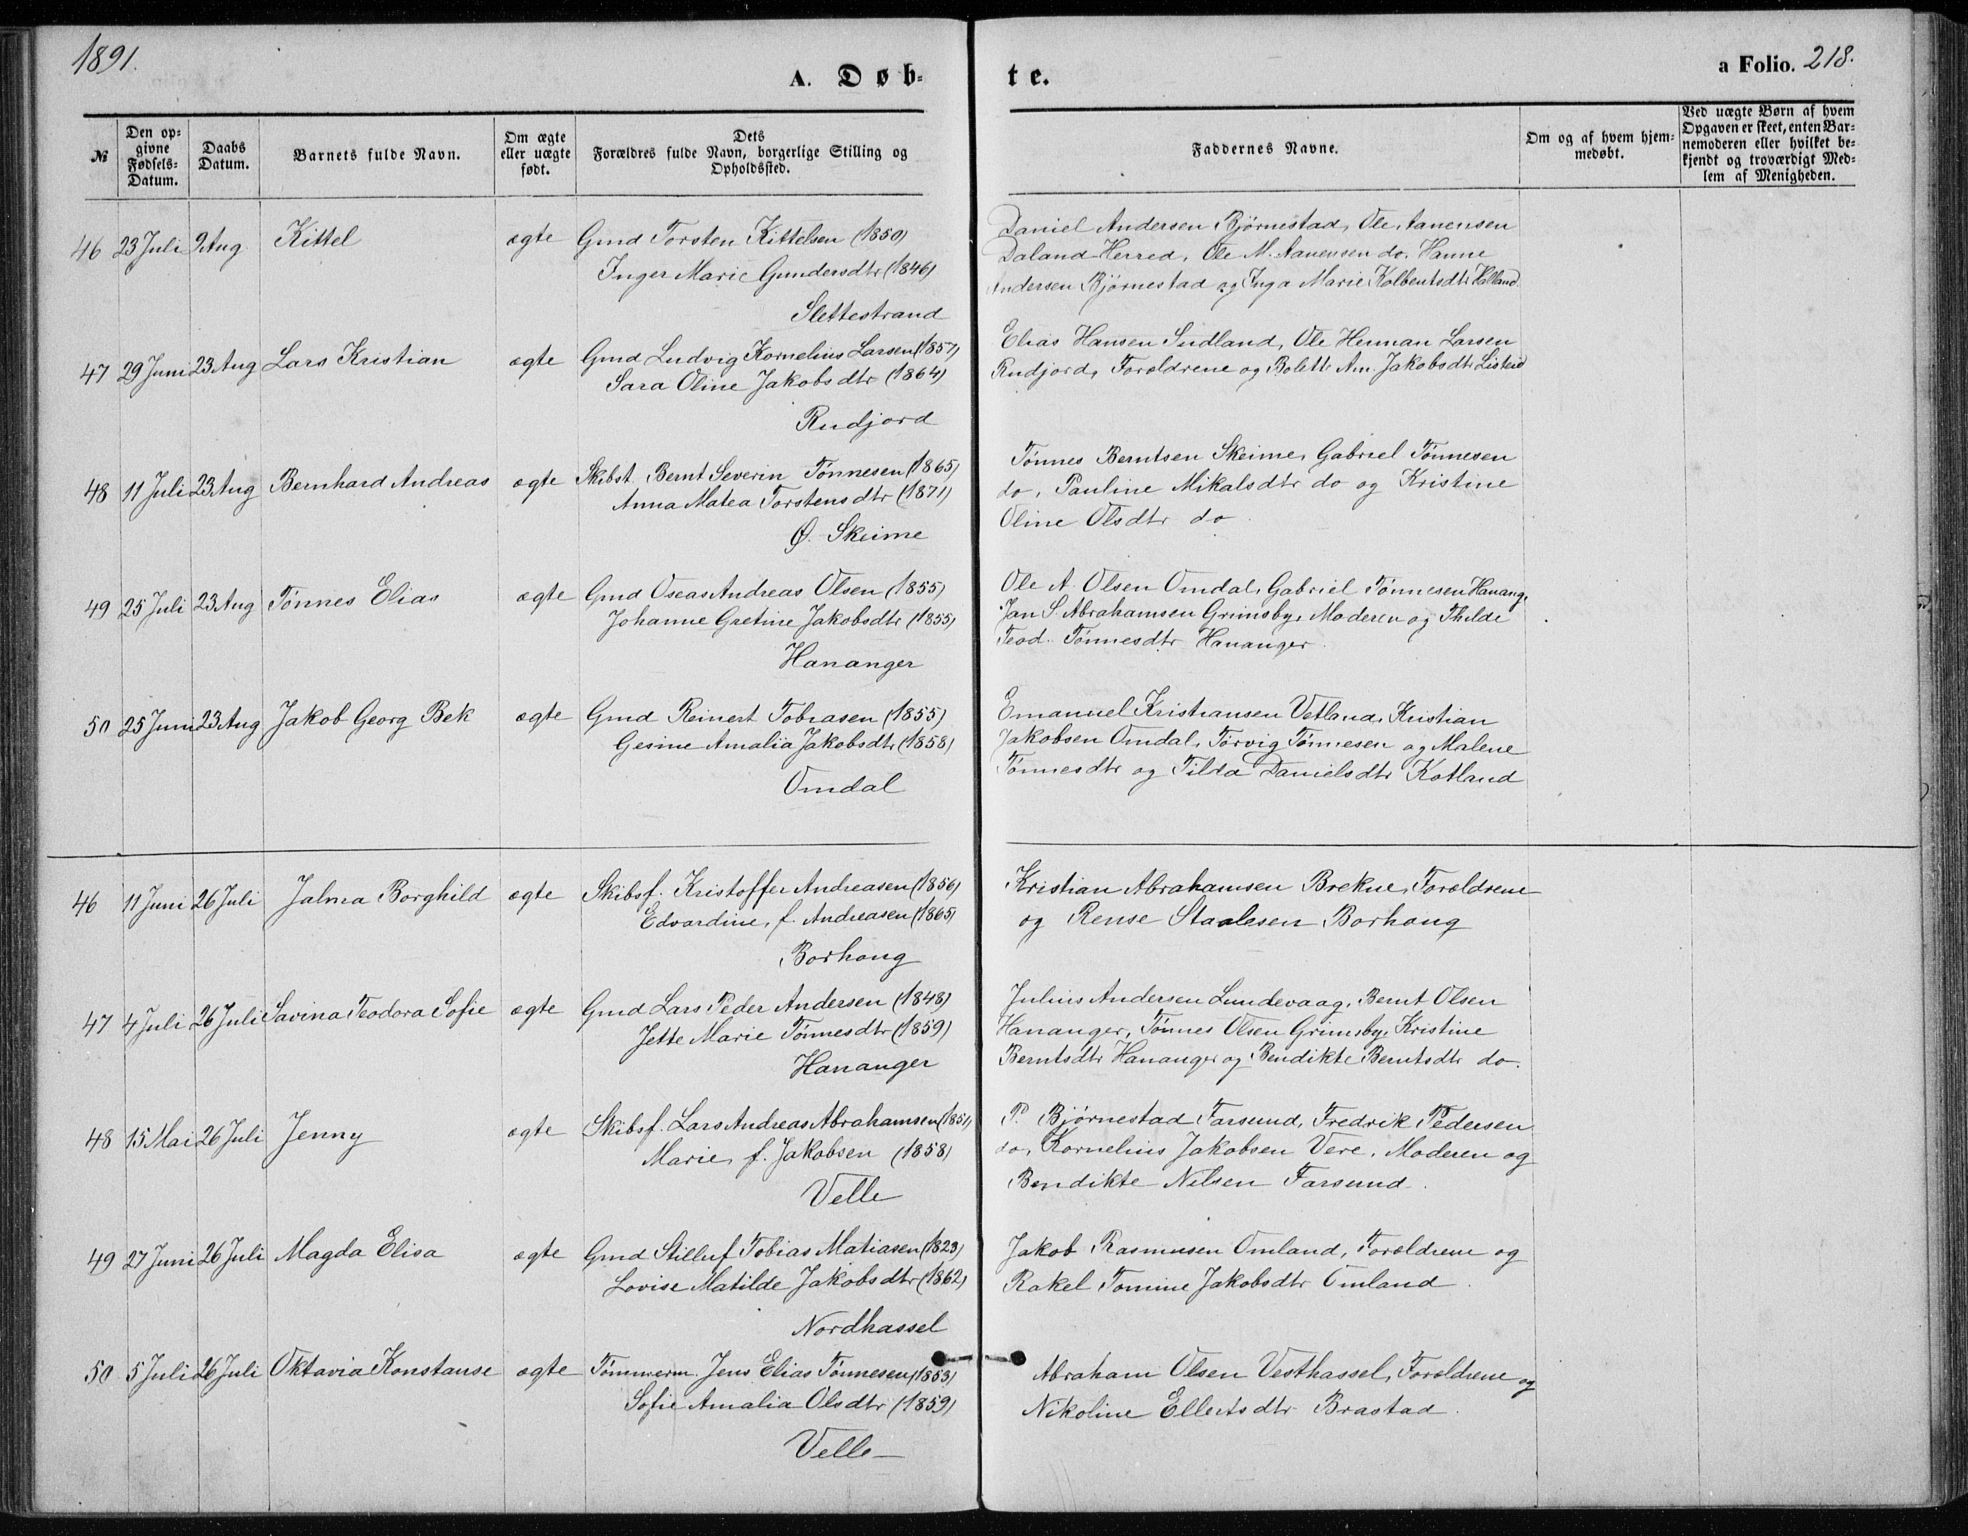 1891.
A. Døb-
te.
a Folio. 218.
№
Den op-
givne
Fødsels-
Datum.
Daabs
Datum.
Barnets fulde Navn.
Om ægte
eller uægte
født.
Dets
Forældres fulde Navn, borgerlige Stilling og
Opholdssted.
Faddernes Navne.
Om og af hvem hjem-
medøbt.
Ved uægte Børn af hvem
Opgaven er skeet, enten Bar-
nemoderen eller hvilket be-
kjendt og troværdigt Med-
lem af Menigheden.
46 23 Juli 9 Aug Kittel ægte Gmd Torsten Kittelsen (1850)
Inger Marie Gundersdtr (1846)
Slettestrand
Daniel Andersen Bjørnestad, Ole Aanensen
Daland Herred, Ole M. Aanensen do. Hanne
Andersen Bjørnestad og Inga Marie Kolbentsdtr Halland
47 29 Juni 23 Aug Lars Kristian ægte Gmd Ludvig Kornelius Larsen (1857)
Sara Oline Jakobsdtr (1864)
Rudjord
Elias Hansen Sudland, Ole Herman Larsen
Rudjord, Forældrene og Bolette Am. Jakobsdtr Listeid
48 11 Juli 23 Aug Bernhard Andreas ægte Skibst. Bernt Severin Tønnesen (1865)
Anna Matea Torstensdtr (1871)
Ø. Skeime
Tønnes Berntsen Skeime, Gabriel Tønnesen
do, Pauline Mikalsdtr do og Kristine
Oline Olsdtr do
49 25 Juli 23 Aug Tønnes Elias ægte Gmd Oseas Andreas Olsen (1855)
Johanne Gretine Jakobsdtr (1855)
Hananger
Ole A. Olsen Omdal, Gabriel Tønnesen Hanang.
Jan S. Abrahamsen Grimsby, Moderen og Thilde
Teod. Tønnesdtr Hananger.
50 25 Juni 23 Aug Jakob Georg Bek ægte Gmd Reinert Tobiasen (1855)
Gesine Amalia Jakobsdtr (1858)
Omdal
Emanuel Kristiansen Vetland, Kristian
Jakobsen Omdal, Torvig Tønnesen og Malene
Tønnesdtr og Tilda Danielsdtr Kotland
46 11 Juni 26 Juli Jalma Borghild ægte Skibsf. Kristoffer Andreasen (1856)
Edvardine, f. Andreasen (1865)
Borhoug
Kristian Abrahamsen Brekne, Forældrene
og Rense Staalesen Borhoug
47 4 Juli 26 Juli Savina Teodora Sofie ægte Gmd Lars Peder Andersen (1848)
Jette Marie Tønnesdtr (1859)
Hananger
Julius Andersen Lundevaag, Bernt Olsen
Hananger, Tønnes Olsen Grimsby, Kristine
Berntsdtr Hananger og Bendikte Berntsdtr do.
48 15 Mai 26 Juli Jenny ægte Skibsf. Lars Andreas Abrahamsen (1851)
Marie, f. Jakobsen (1858)
Velle
P. Bjørnestad Farsund, Fredrik Pedersen
do, Kornelius Jakobsen Vere, Moderen og
Bendikte Nilsen Farsund.
49 27 Juni 26 Juli Magda Elisa ægte Gmd Stilluf Tobias Matiasen (1823)
Lovise Matilde Jakobsdtr (1862)
Nordhassel
Jakob Rasmusen Omland, Forældrene og
Rakel Tomine Jakobsdtr Omland.
50 5 Juli 26 Juli Oktavia Konstanse ægte Tømmerm. Jens Elias Tønnesen (1853)
Sofie Amalia Olsdtr (1859)
Velle
Abraham Olsen Vesthassel, Forældrene og
Nikoline Ellertsdtr Brastad.